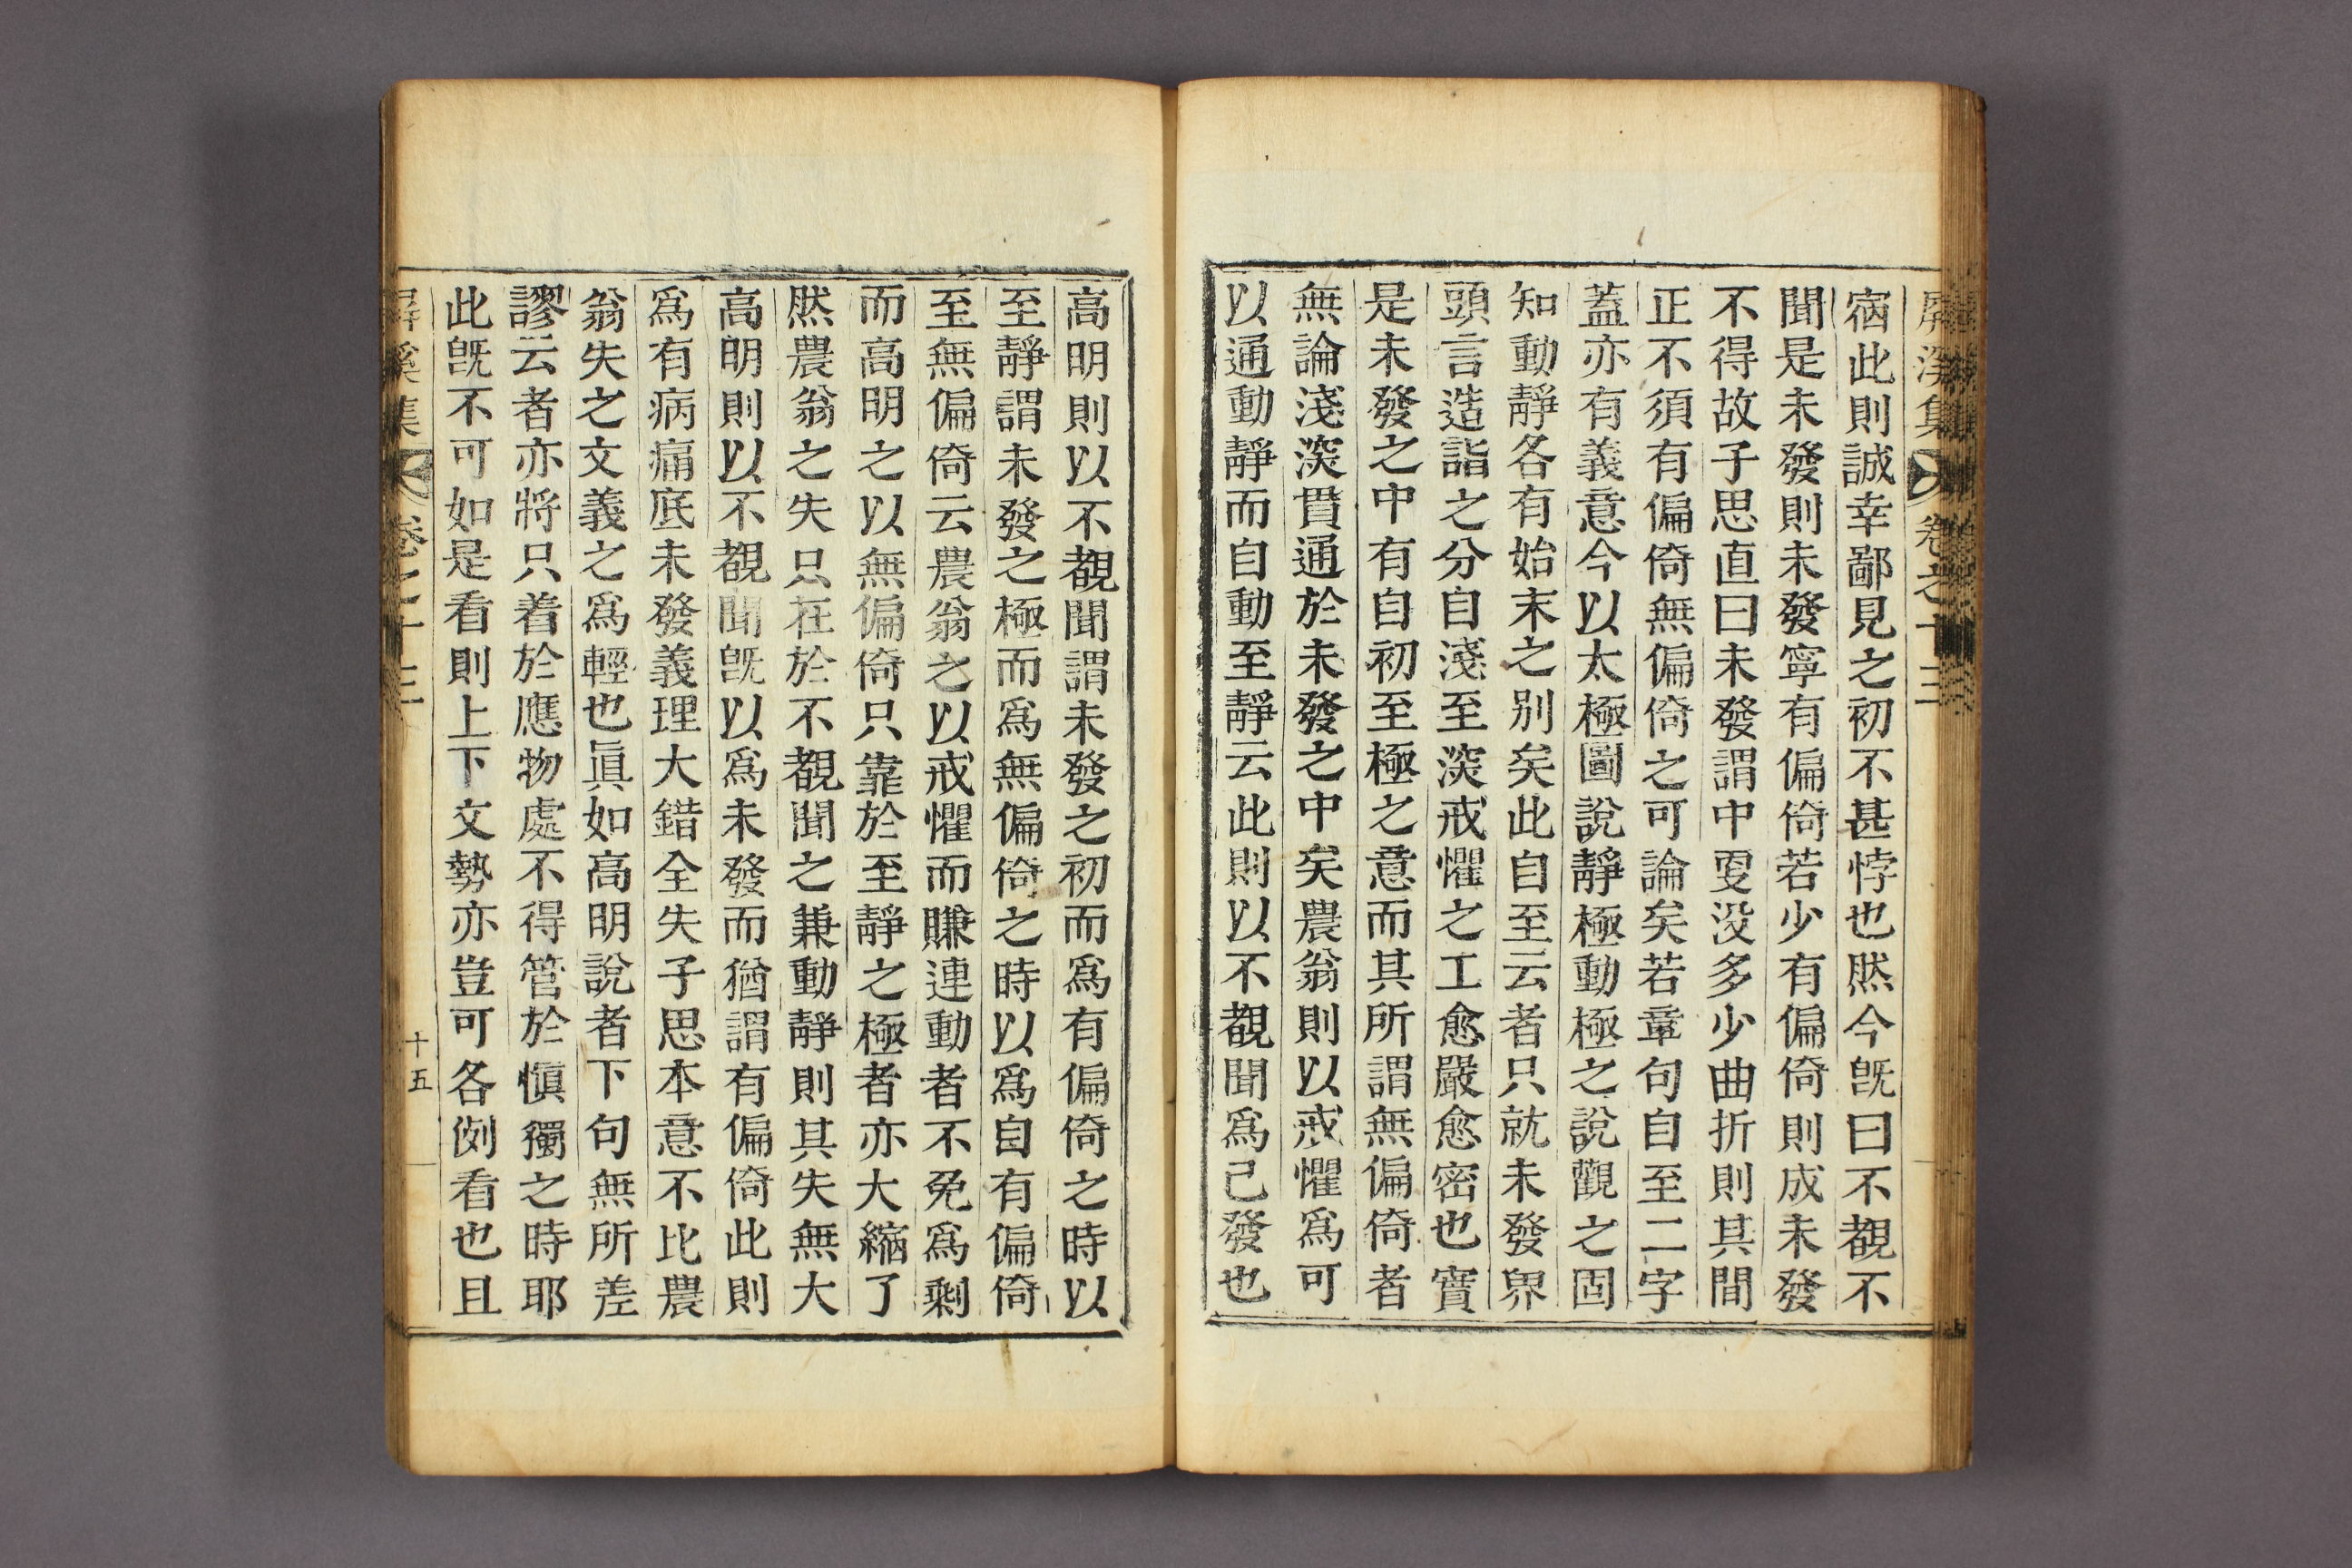 屛溪集 卷之十三
宿此則誠幸鄙見之初不甚悖也然今旣曰不覩不
聞是未發則未發寧有偏倚若少有偏倚則成未發
不得故子思直曰未發謂中更没多少曲折則其間
正不須有偏倚無偏倚之可論矣若章句自至二字
蓋亦有義意今以太極圖說靜極動極之說觀之固
知動靜各有始末之别矣此自至云者只就未發界
頭言造詣之分自淺至深戒懼之工愈嚴愈密也實
是未發之中有自初至極之意而其所謂無偏倚者
無論淺深貫通於未發之中矣農翁則以戒懼爲可
以通動靜而自動至靜云此則以不覩聞爲己發也
高明則以不覩聞謂未發之初而爲有偏倚之時以
至靜謂未發之極而爲無偏倚之時以爲自有偏倚
至無偏倚云農翁之以戒懼而賺連動者不免爲剩
而高明之以無偏倚只靠於至靜之極者亦大縮了
然農翁之失只在於不覩聞之兼動靜則其失無大
高明則以不覩聞旣以爲未發而猶謂有偏倚此則
爲有病痛底未發義理大錯全失子思本意不比農
翁失之文義之爲輕也眞如高明說者下句無所差
謬云者亦將只着於應物處不得管於愼獨之時耶
此旣不可如是看則上下文勢亦豈可各例看也且
屛溪集 卷之十三 十五